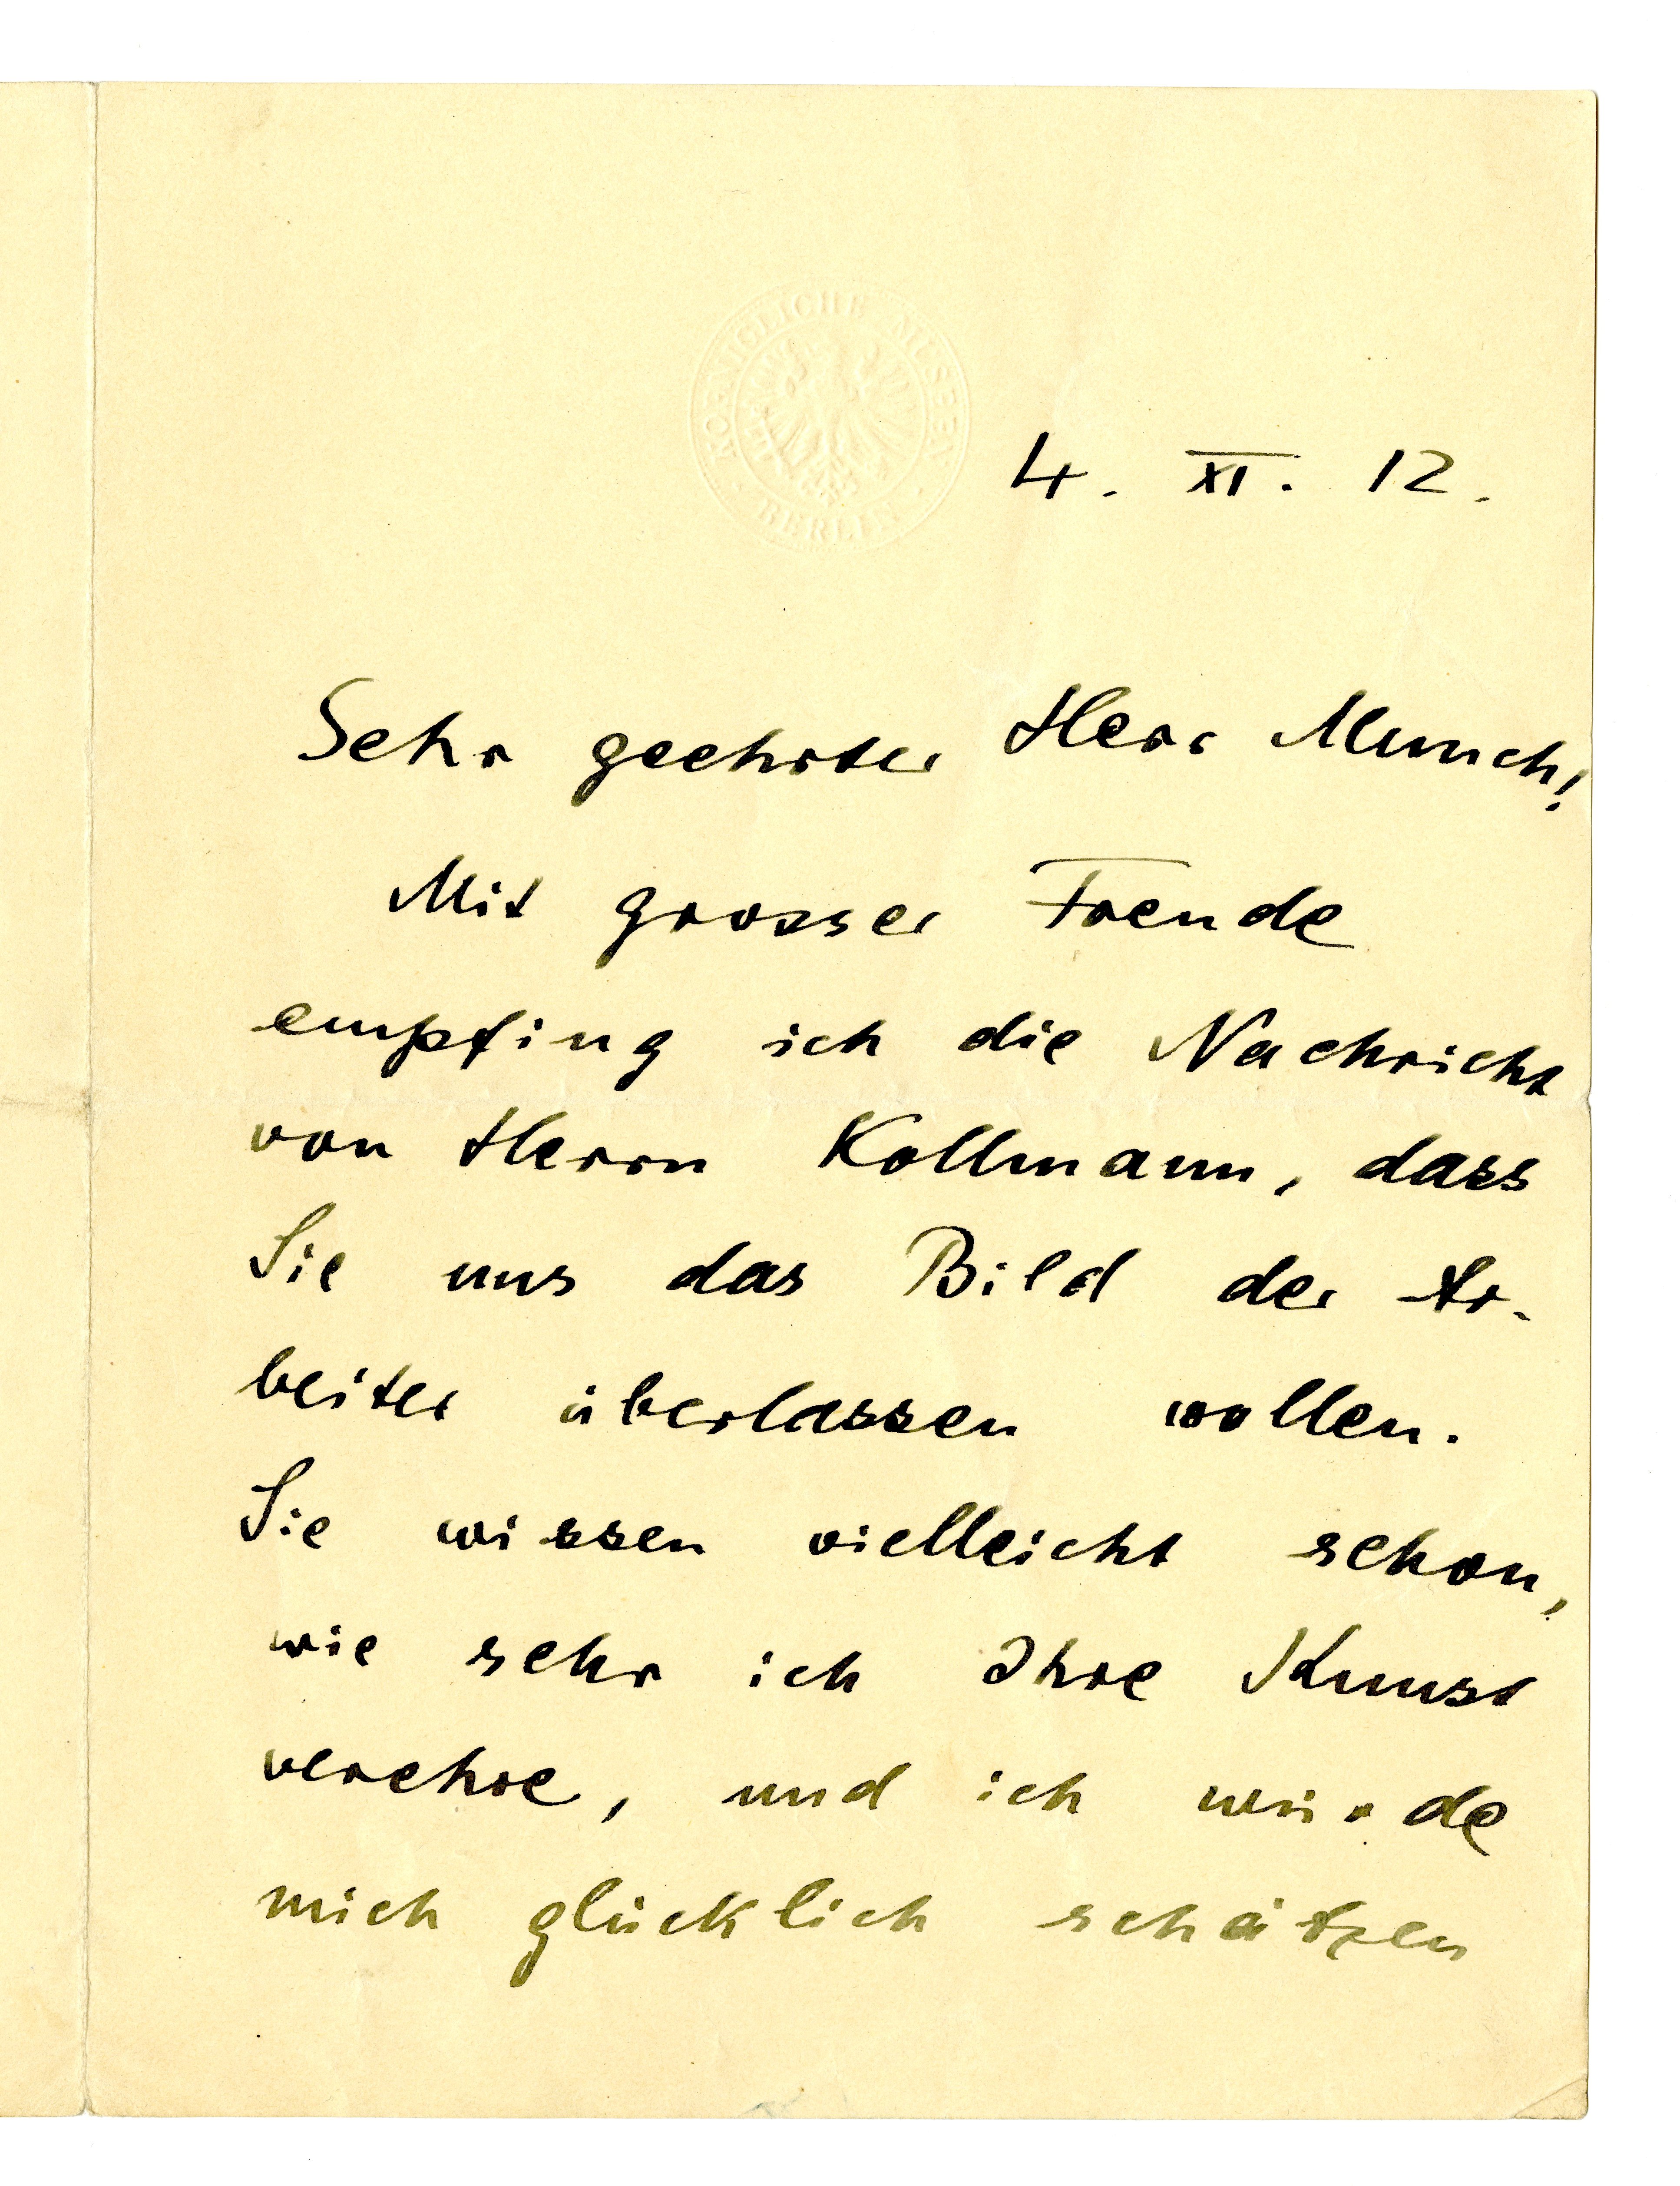 KOENIGLICHE MUSEEN
BERLIN
4. XI. 12.
Sehr geehrter Herr Munch!
Mit grosser Freude
empfing ich die Nachricht
von Herrn Kollmann, dass
Sie uns das Bild der Ar-
beiter überlassen wollen.
Sie wissen vielleicht schon,
wie sehr ich Ihre Kunst
verehre, und ich würde
mich glücklich schätzen